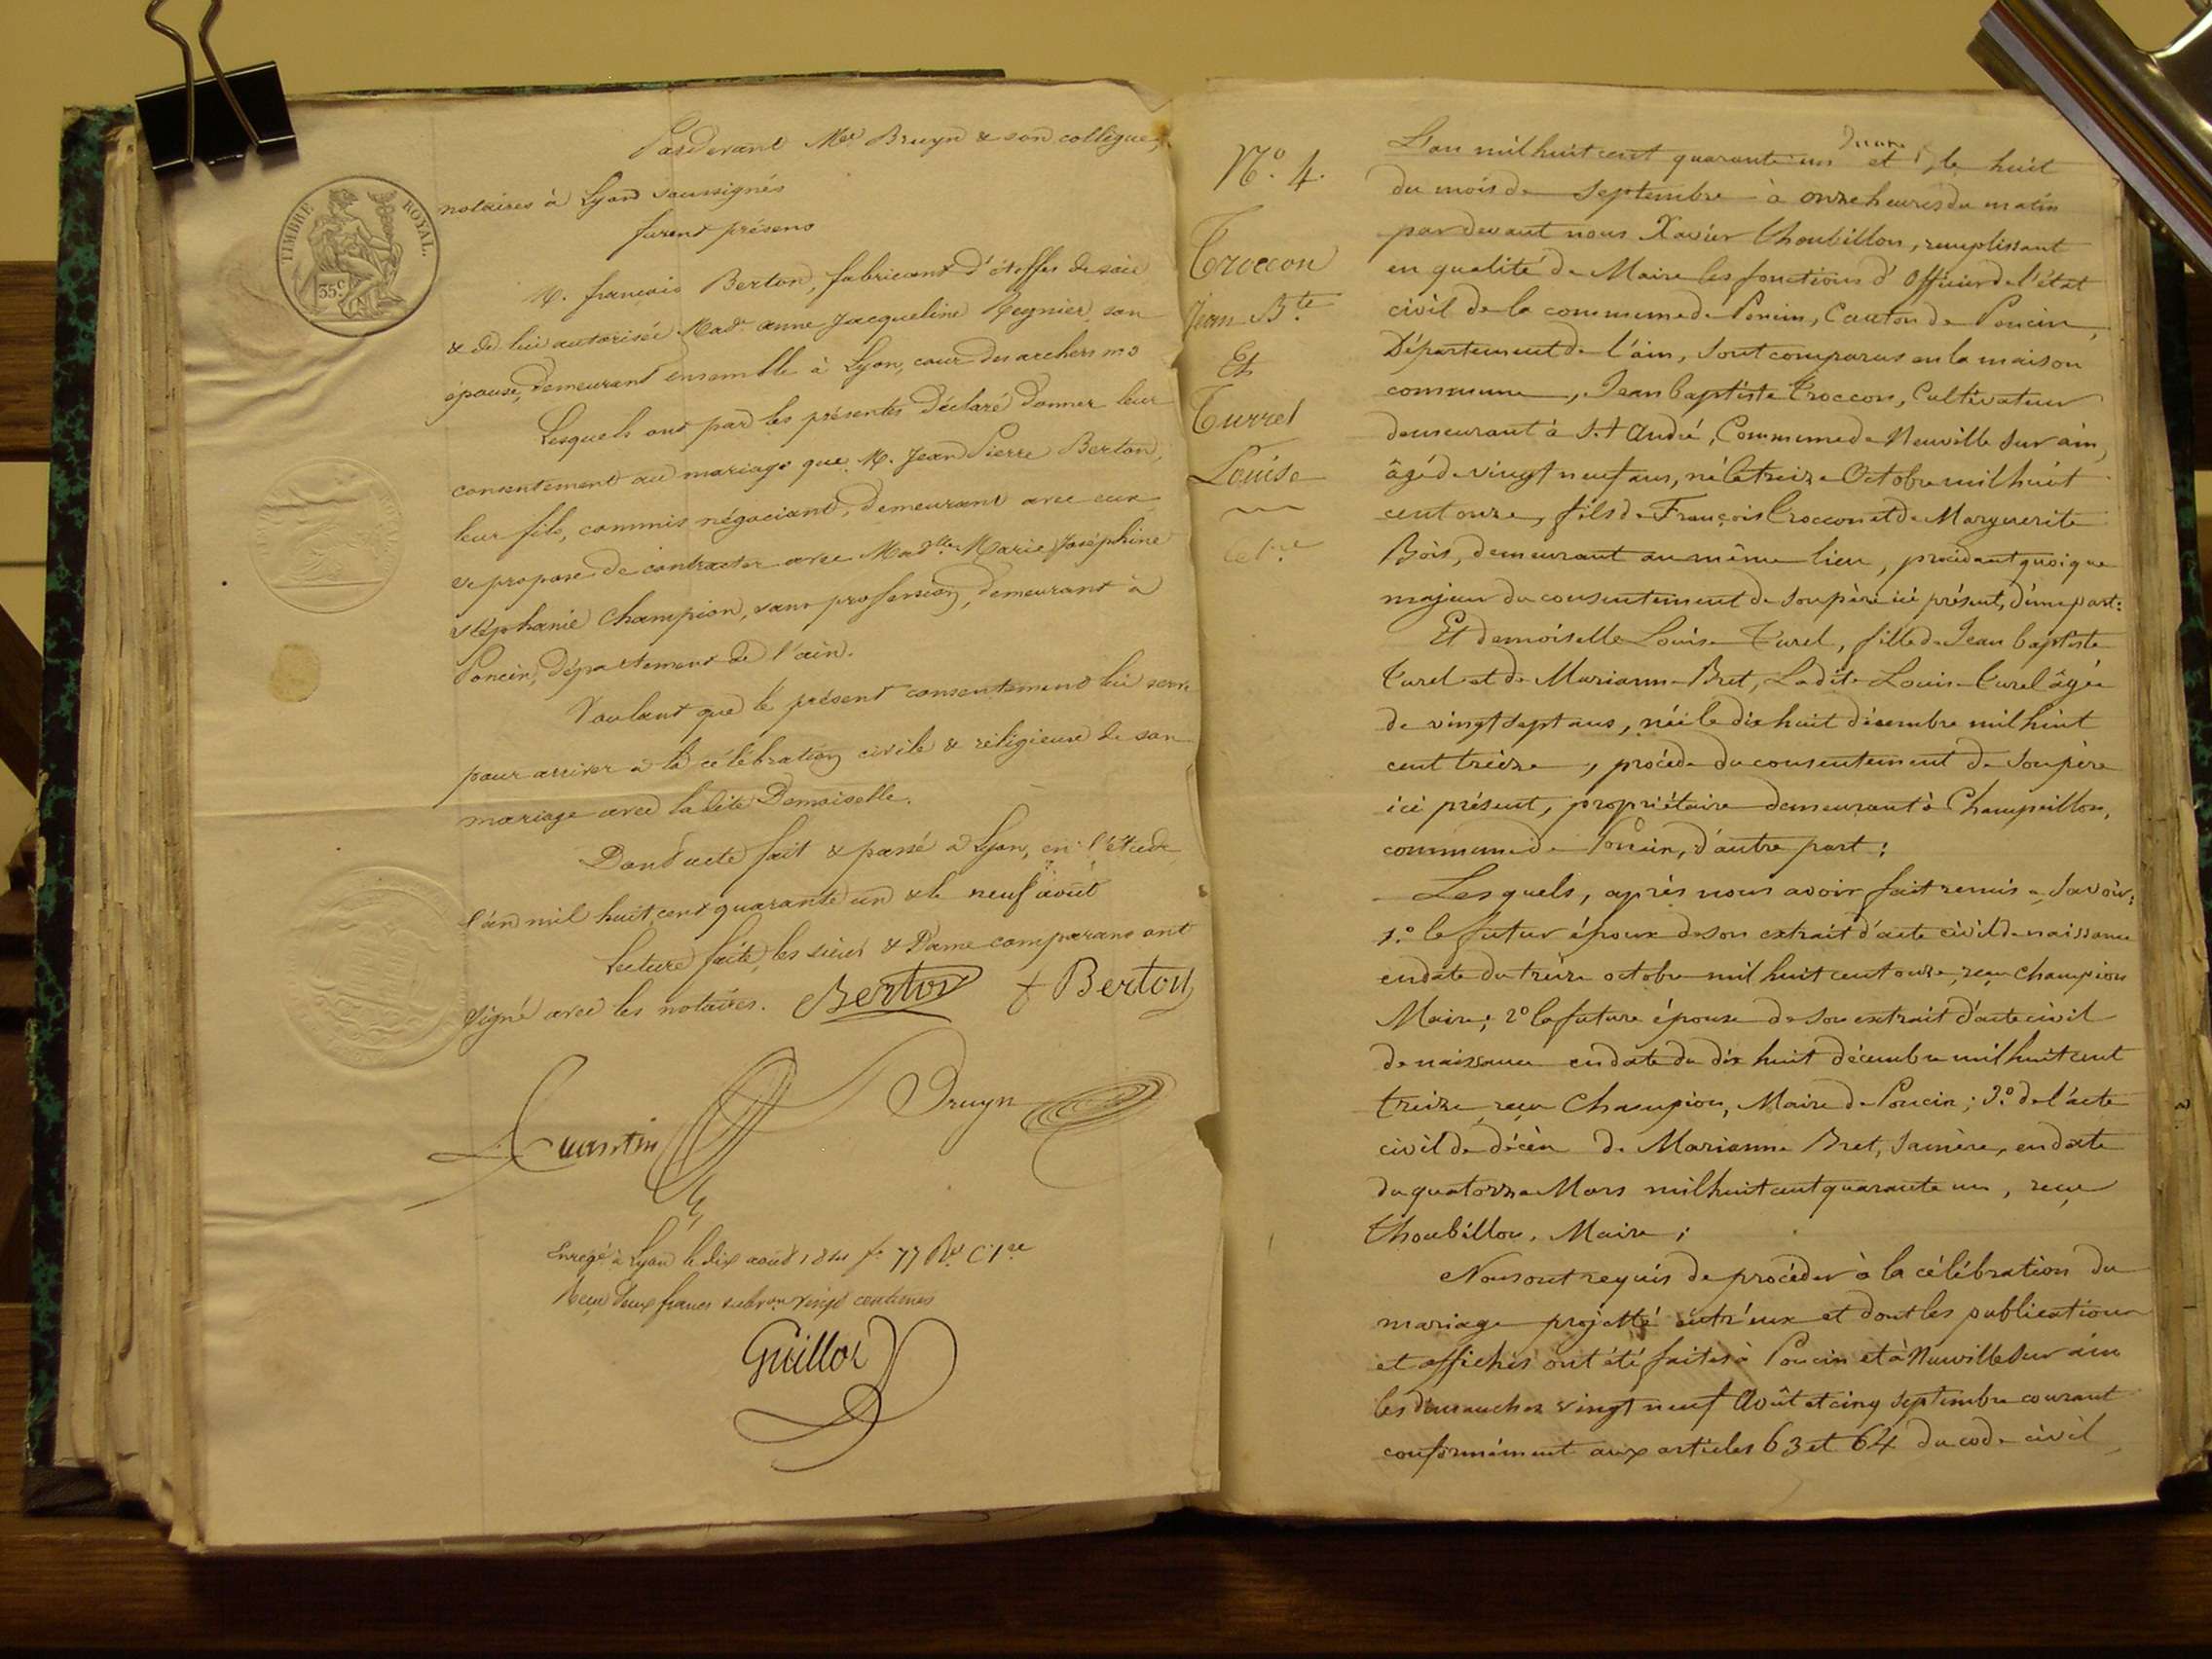 TIMBRE ROYAL.
35c
Pardevant Mes Bruyn & son collègue,
notaires à Lyon soussignés
furent présens
M. françois Berton, fabricant d'étoffes de soie
& de lui autorisée Made anne Jacqueline Regnier son
épouse, demeurant ensemble à Lyon, cour des archers no 3
Lesquels ont par les présentes déclaré donner leur
consentement au mariage que M. Jean Pierre Berton,
leur fils, commis négociant, demeurant avec eux
se propose de contracter avec Madlle Marie Joséphine
stéphanie Champion, sans profession, demeurant à
Poncin, département de l'ain.
Voulant que le présent consentement lui serve
pour arriver à la célébration civile & religieuse de son
mariage avec ladite Demoiselle.
Dont acte fait & passé à Lyon, en l'étude
l'an mil huit cent quarante un & le neuf août
Lecture faite, les sieur & Dame comparans ont
signé avec les notaires. Berton f Berton
Quantin Bruyn
Enregé à Lyon le dix août 1841 fo 77 Ro C 1re
Reçu deux francs subvon vingt centimes
Guillot
No. 4.
Troccon
Jean Bte
Et
Turrel
Louise
L'an mil huit cent quarante un et le huit
du mois de Septembre à onze heures du matin
par devant nous Xavier Thoubillon, remplissant
en qualité de Maire les fonctions d'Officier de l'état
civil de la commune de Poncin, Canton de Poncin,
Département de l'ain, sont comparus en la maison
commune, Jean baptiste Troccon, Cultivateur
demeurant à St André, Commune de Neuville sur ain,
âgé de vingt neuf ans, né le treize Octobre mil huit
cent onze, fils de François Troccon et de Marguerite
Bois, demeurant au même lieu, procédant quoique
majeur du consentement de son père ici présent, d'une part:
Et demoiselle Louise Turel, fille de Jean baptiste
Turel et de Marianne Bret, Ladite Louise Turel âgée
de vingt sept ans, née le dix huit décembre mil huit
cent treize, procède du consentement de son père
ici présent, propriétaire demeurant à Champeillon,
commune de Poncin, d'autre part:
Lesquels, après nous avoir fait remis, Savoir:
1.o le futur époux de son extrait d'acte civil de naissance
en date du treize octobre mil huit cent onze, reçu Champion
Maire; 2o la future épouse de son extrait d'acte civil
de naissance en date du dix huit décembre mil huit cent
treize reçu Champion, Maire de Poncin; 3.o de l'acte
civil de décès de Marianne Bret, sa mère, en date
du quatorze Mars mil huit cent quarante un, reçu
Thoubillon, Maire;
Nous ont requis de procéder à la célébration du
mariage projetté entr'eux et dont les publications
et affiches ont été faites à Poncin et à Neuville sur ain
les dimanches vingt neuf Août et cinq septembre courant
conformément aux articles 63 et 64 du code civil